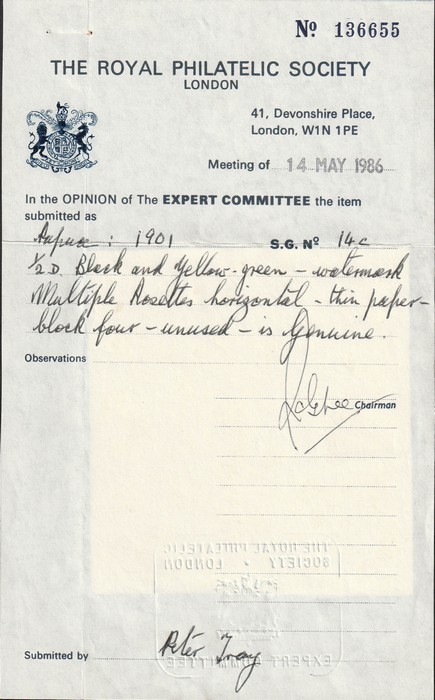 Nº 136655
THE ROYAL PHILATELIC SOCIETY
LONDON
41, Devonshire Place,
London, W1N 1PE
Meeting of 14 MAY 1986
In the OPINION of The EXPERT COMMITTEE the item
submitted as
Papua : 1901 S.G. Nº 14c
½D. Black and Yellow-green - watermark
Multiple Rosettes horizontal - thin paper -
block four - unused - is Genuine.
Observations
Chairman
THE ROYAL PHILATELIC
SOCIETY • LONDON
EXPERT COMMITTEE
Submitted by Peter Troy